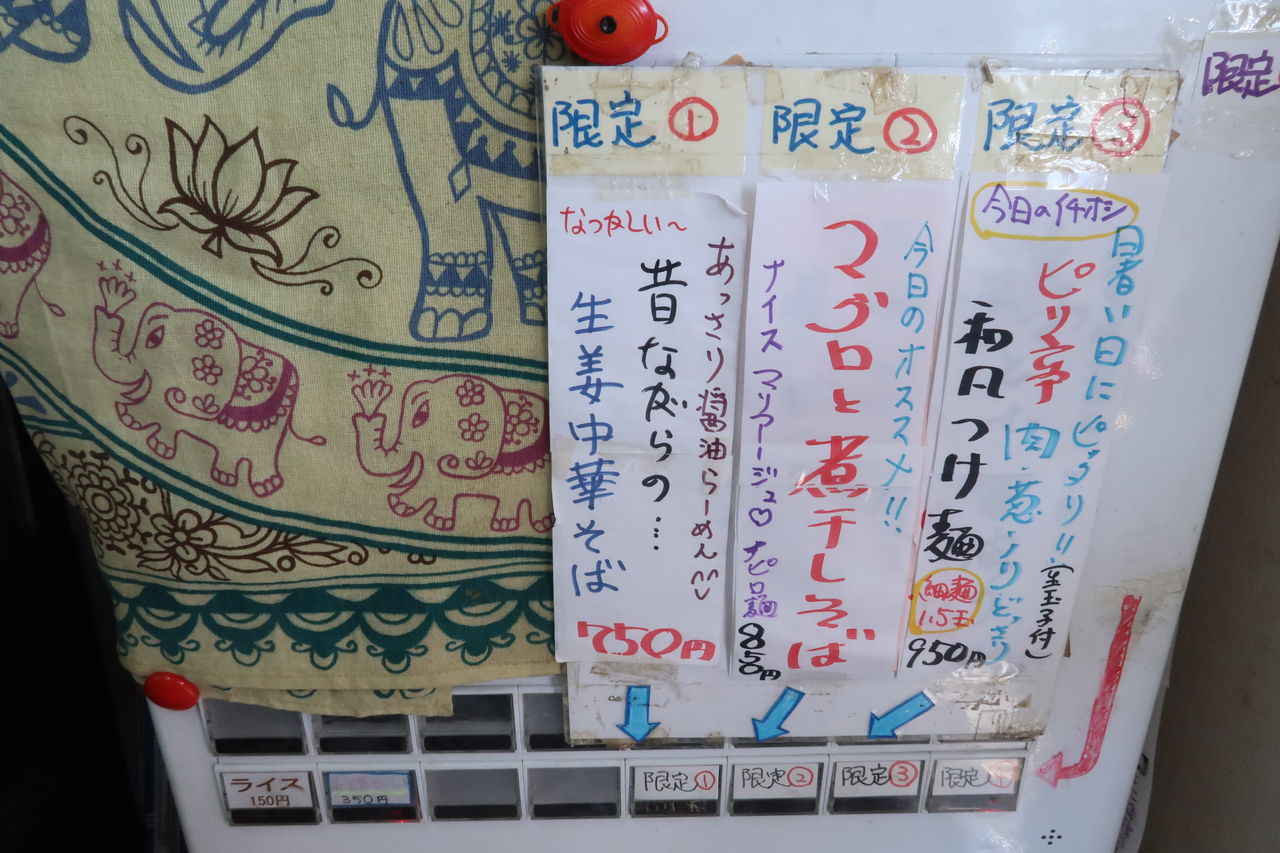 限定①
なつかしい〜
あっさり醤油らーめん
昔ながらの…
生姜中華そば
750円
限定②
今日のオススメ!!
マグロと煮干しそば
ナイス マリアージュ♡ ナピロ麺
850円
限定③
今日のイチホシ
暑い日にピッタリ!!
(生玉子付)
ピリ辛
肉・葱・ノリどっさり
和風つけ麺
細麺
1.5玉
950円
限定
ライス
150円
350円
限定①
限定②
限定③
限定④